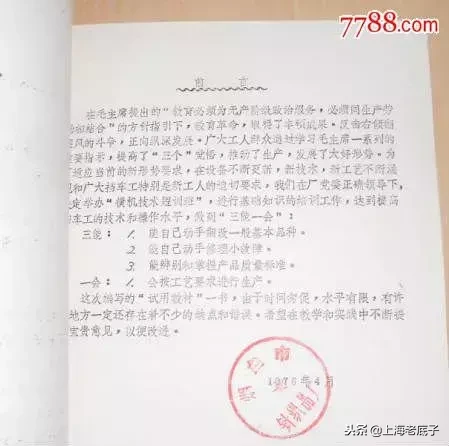 7788.com
前言
在毛主席提出的“教育必须为无产阶级政治服务，必须同生产劳
动相结合”的方针指引下，教育革命，取得了丰硕成果。反击右倾翻
案风的斗争，正向纵深发展。广大工人群众通过学习毛主席一系列的
重要指示，提高了“三个”觉悟，推动了生产，发展了大好形势。为
了适应当前的新形势要求，在设备不断更新，新技术，新工艺不断涌
现和广大挡车工特别是新工人的迫切要求，我们在厂党委正确领导下，
决定举办“横机技术短训班”，进行基础知识的培训工作，达到提高
挡车工的技术和操作水平，做到“三能一会”：
三能：1. 能自己动手翻改一般基本品种。
2. 能自己动手修理小故障。
3. 能辨别和掌握产品质量标准。
一会：1. 会按工艺要求进行生产。
这次编写的“试用教材”一书，由于时间仓促，水平有限，有许
地方一定还存在着不少的缺点和错误。希望在教学和实践中不断提
宝贵意见，以便改进。
1976年4月
头条@上海老底子